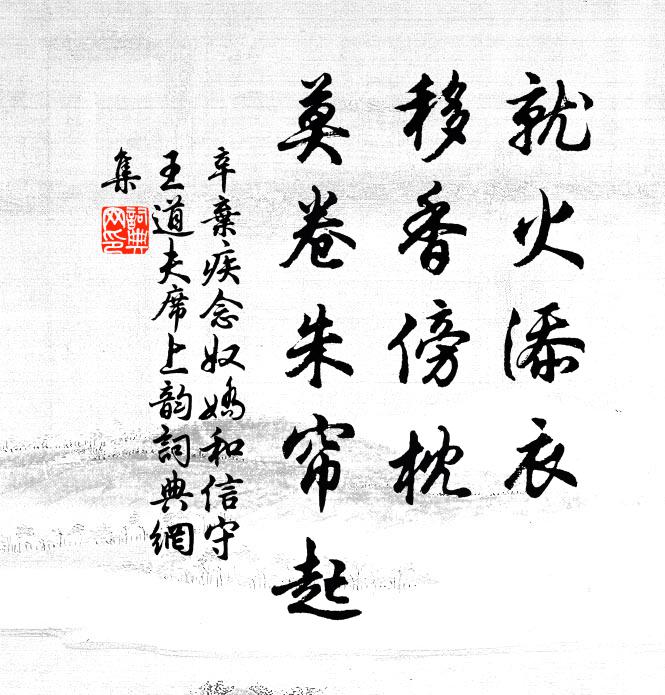 就火添衣
移香傍枕
莫卷朱帘起
辛棄疾念奴嬌和信守
王道夫席上韵詞典網
集
詞典
网印